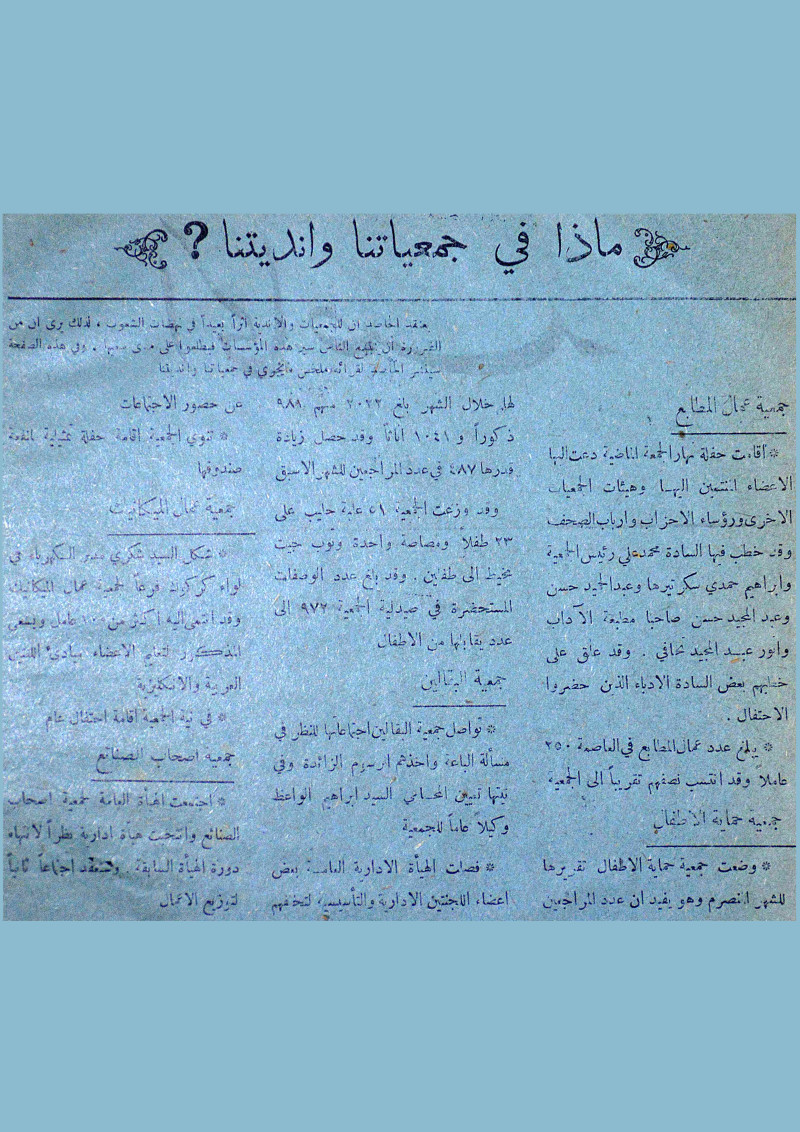 ماذا في جمعياتنا وانديتنا ?
يعتقد الحاصد ان للجمعيات والاندية اثراً بعيداً في نهضات الشعوب ، لذلك يرى ان من
الضرورة ان يتتبع الناس سير هذه المؤسسات فيطلعوا على مدى سعيها . وفي هذه الصفحة
سينشر الحاصد لقرائه ملخص ما يجري في جمعياتنا وانديتنا
جمعية عمال المطابع
* اقامت حفلة نهار الجمعة الماضية دعت اليها
الاعضاء المنتمين اليها وهيئات الجمعيات
الاخرى ورؤساء الاحزاب وارباب الصحف
وقد خطب فيها السادة محمد علي رئيس الجمعية
وابراهيم حمدي سكرتيرها وعبد الحميد حسن
وعبد المجيد حسن صاحبا مطبعة الآداب
وانور عبد المجيد نحافي . وقد علق على
خطبهم بعض السادة الادباء الذين حضروا
الاحتفال .
* يبلغ عدد عمال المطابع في العاصمة ٢٥٠
عاملاً وقد انتسب نصفهم تقريباً الى الجمعية
جمعية حماية الاطفال
* وضعت جمعية حماية الاطفال تقريرها
للشهر المنصرم وهو يفيد ان عدد المراجعين
لها خلال الشهر بلغ ٢٠٢٢ منهم ٩٨١
ذكوراً و ١٠٤١ اناثاً وقد حصل زيادة
قدرها ٤٨٧ في عدد المراجعين للشهر الاسبق
وقد وزعت الجمعية ٥١ علبة حليب على
٢٣ طفلاً ومصاصة واحدة وثوب حيث
بخيط الى طفلين . وقد بلغ عدد الوصفات
المستحضرة في صيدلية الجمعية ٩٧٢ الى
عدد يقابلها من الاطفال
جمعية البقالين
* تواصل جمعية البقالين اجتماعاتها للنظر في
مسألة الباعة واخذهم الرسوم الزائدة وفي
نيتها تعيين المحامي السيد ابراهيم الواعظ
وكيلاً عاماً للجمعية
* فصلت الهيأة الادارية العامة بعض
اعضاء اللجنتين الادارية والتأسيسية لتخلفهم
عن حضور الاجتماعات
* تنوي الجمعية اقامة حفلة تمثيلية لمنفعة
صندوقها
جمعية عمال الميكانيك
* شكل السيد شكري مدير الكهرباء في
لواء كركوك فرعاً لجمعية عمال الميكانيك
وقد انتمى اليه اكثر من ١٠٠ عامل ويسعى
المذكور لتعليم الاعضاء مبادئ اللغتين
العربية والانكليزية
* في نية الجمعية اقامة احتفال عام
جمعية اصحاب الصنائع
* اجتمعت الهيأة العامة لجمعية اصحاب
الصنائع وانتخبت هيأة ادارية نظراً لانتهاء
دورة الهيأة السابقة . وستعقد اجتماعاً ثانياً
لتوزيع الاعمال